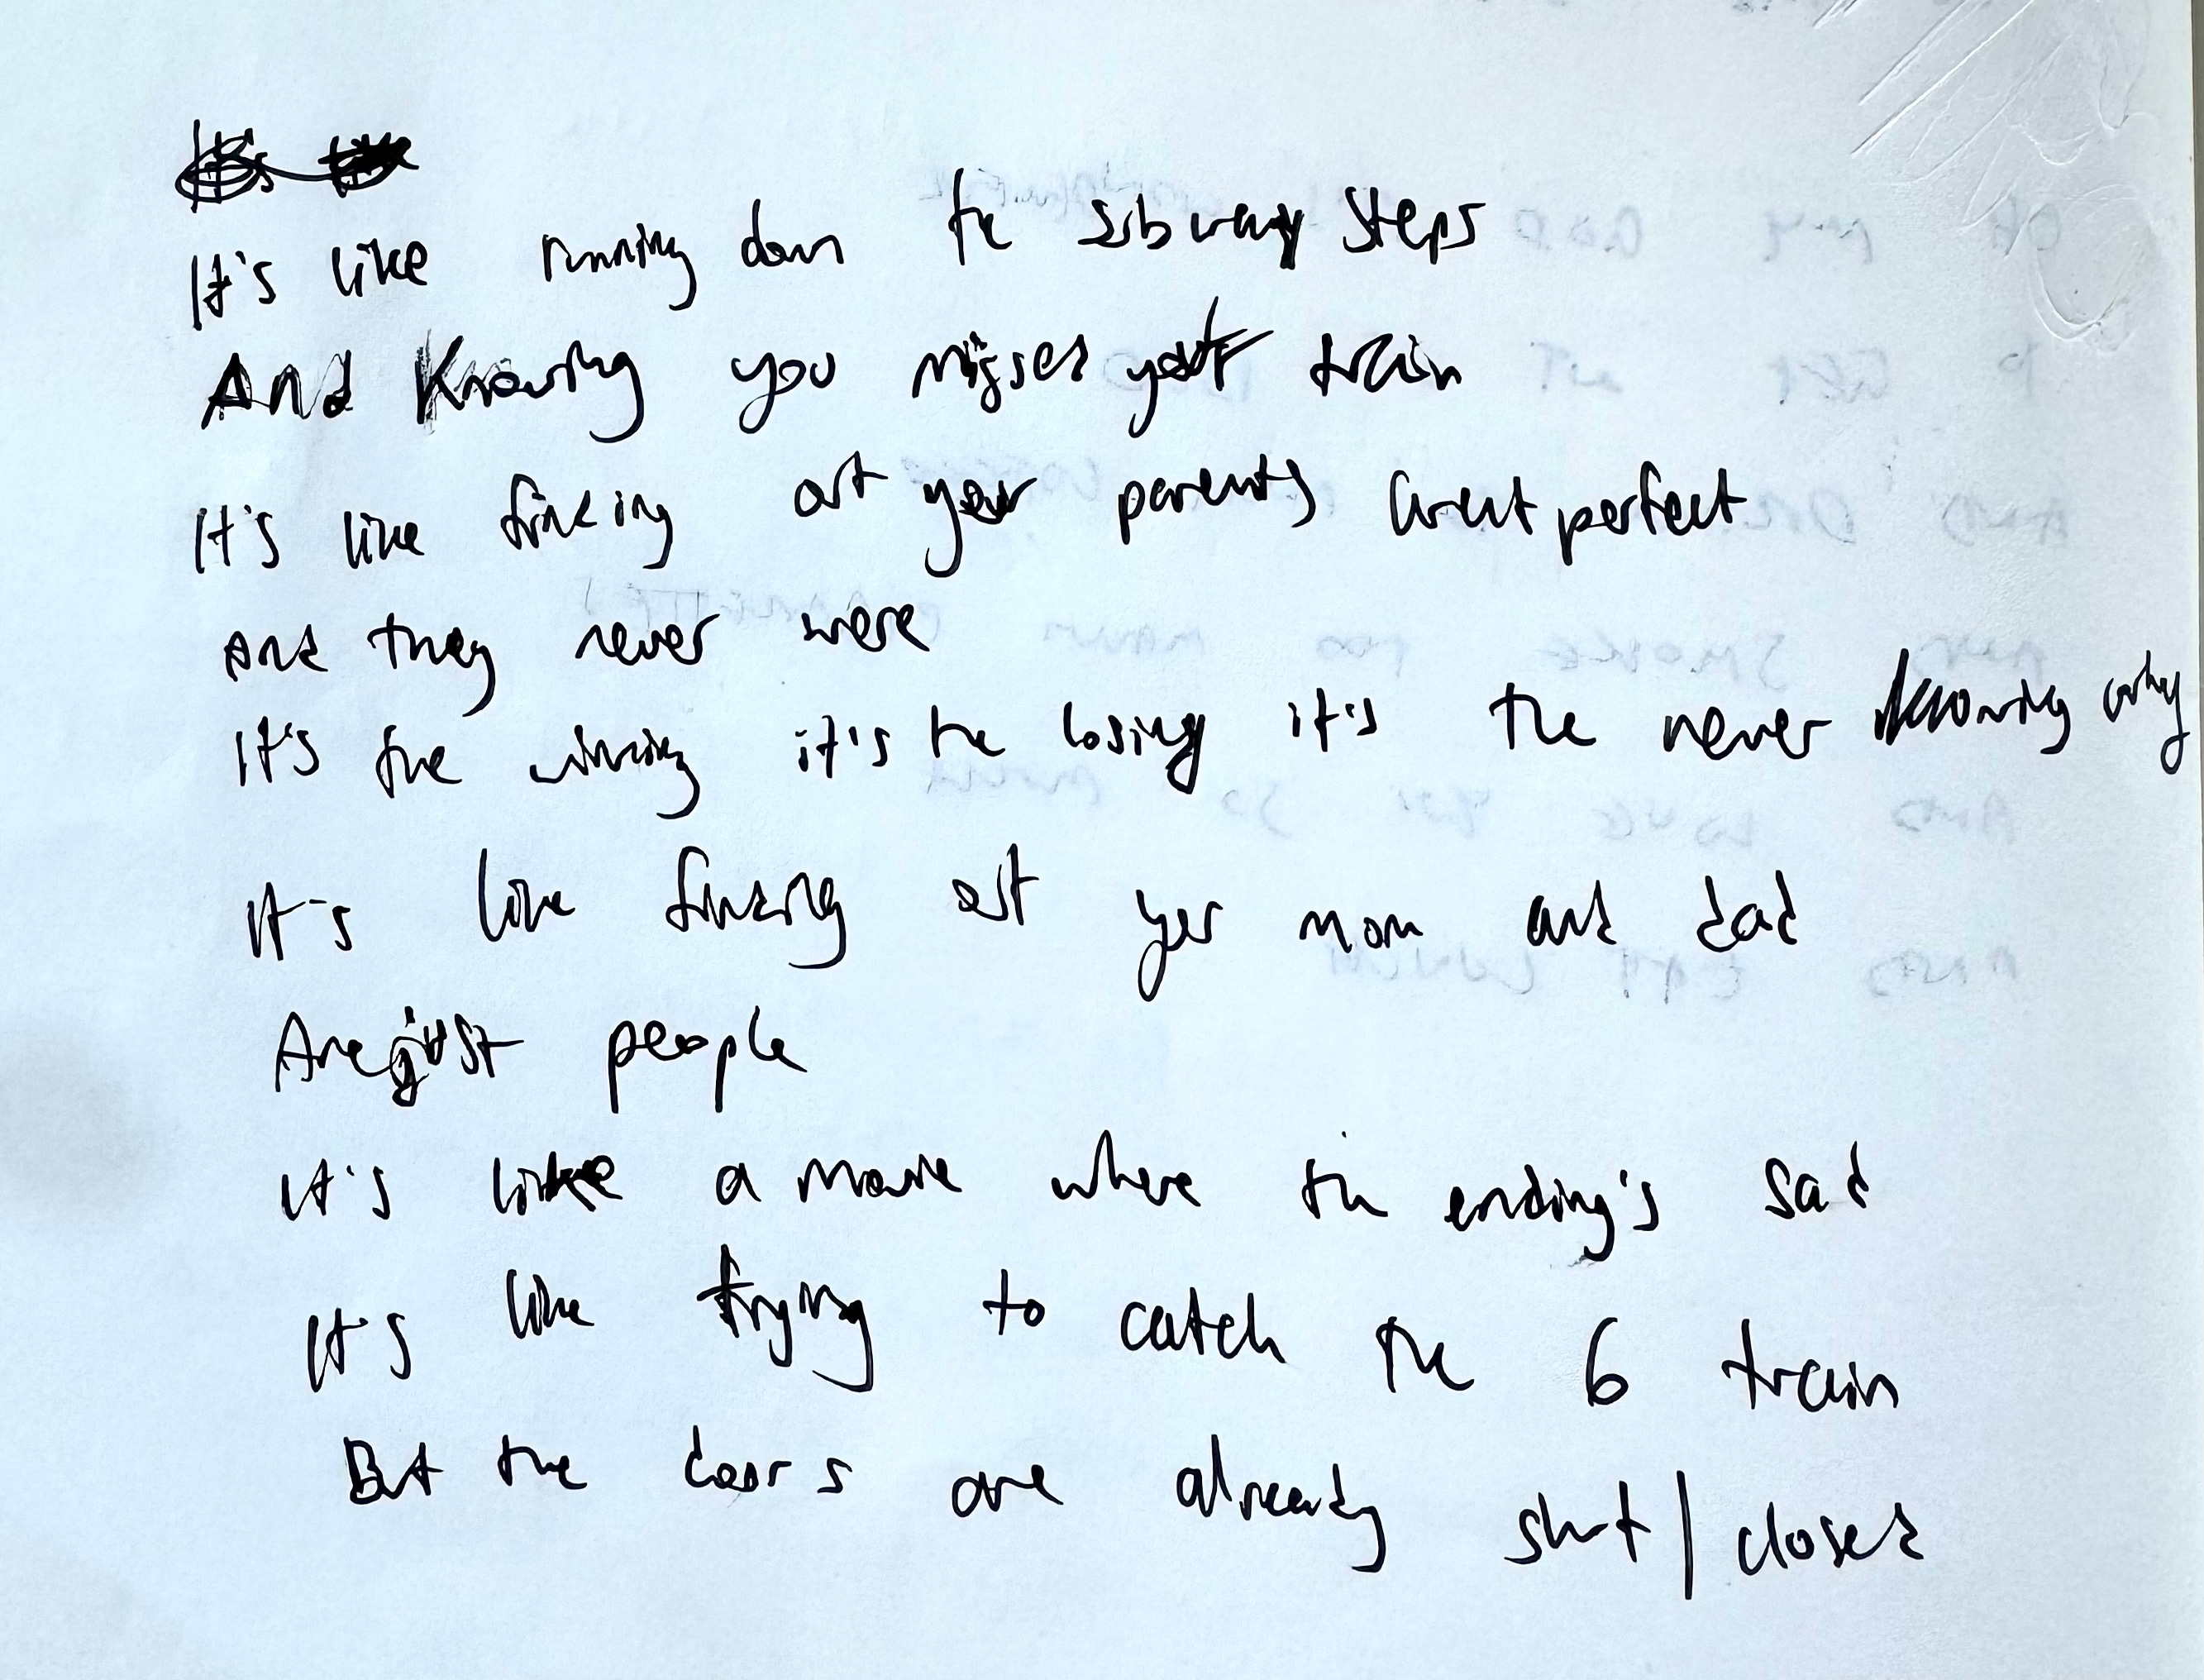 It's like running down the subway steps
And Knowing you missed your train
It's like finding out your parents arent perfect
And they never were
It's the winning it's the losing it's the never knowing why
It's like finding out yer mom and dad
Are just people
It's like a movie where the ending's sad
It's like trying to catch the 6 train
But the doors are already shut/closed